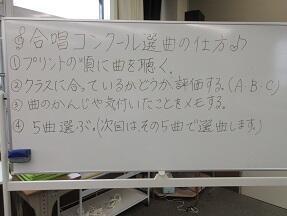 合唱コンクール選曲の仕方♪
①プリントの順に曲を聴く。
②クラスに合っているかどうか、評価する。(A・B・C)
③曲のかんじや気付いたことをメモする。
④ 5曲選ぶ。(次回はその5曲で選曲します。)